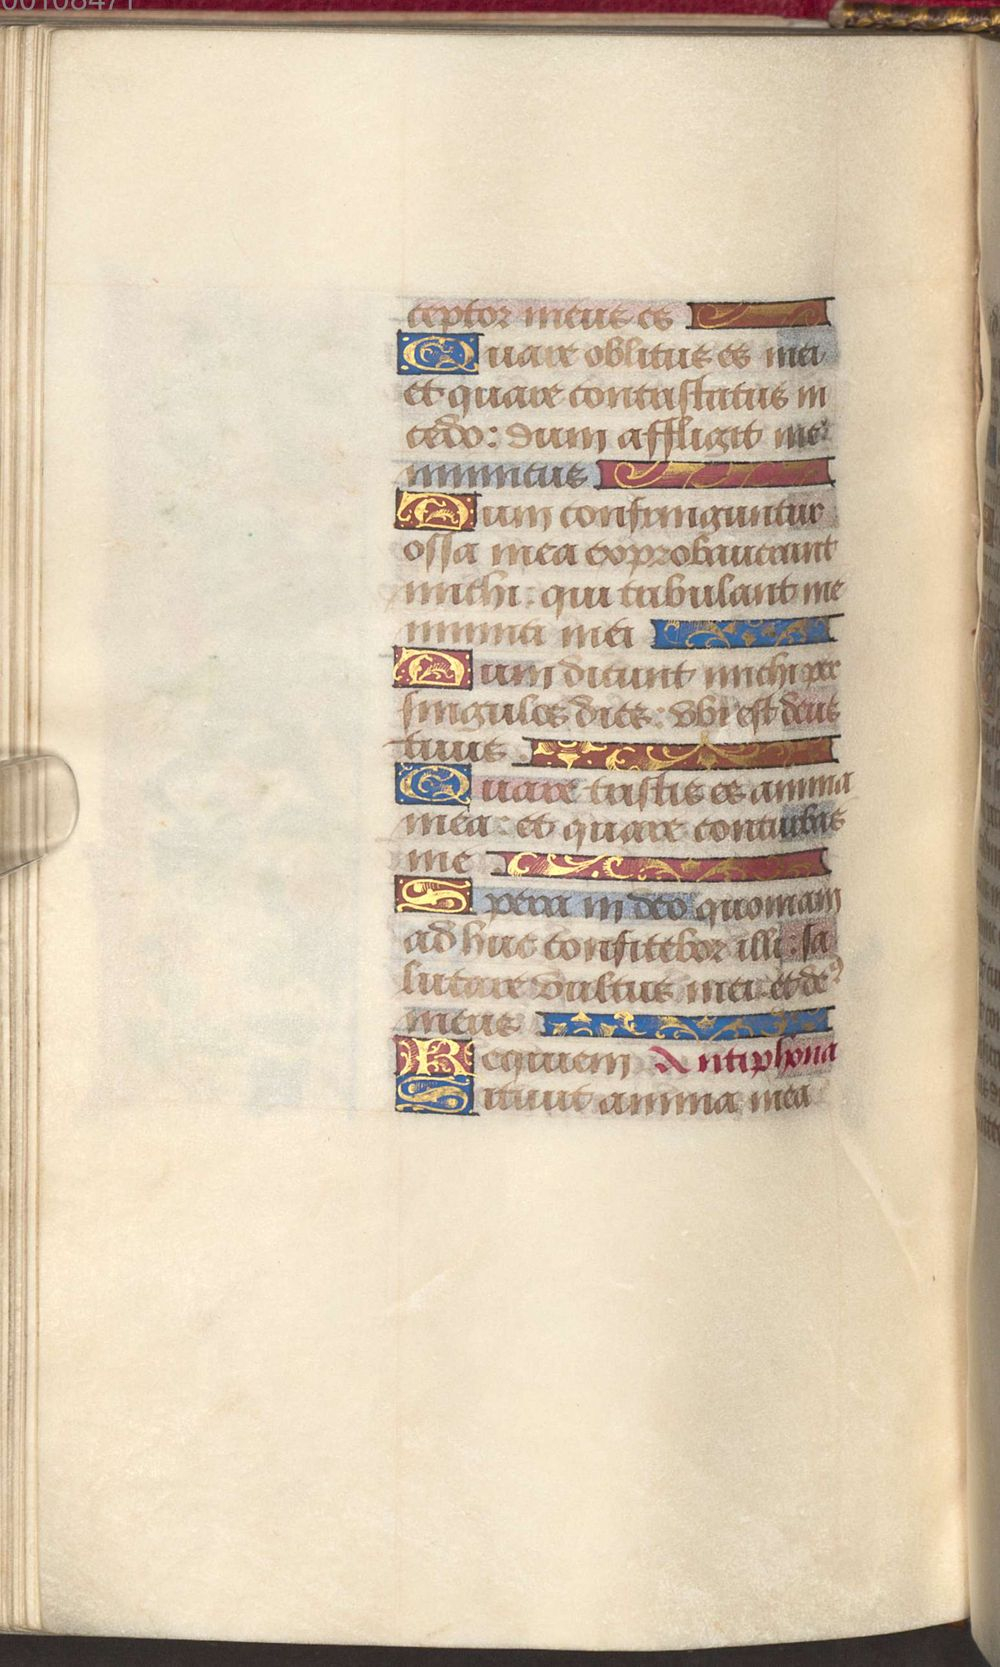 00108471
ceptor meus es
Quare oblitus es mei
et quare contristatus in
cedo: dum affligit me
inimicus
Dum confringuntur
ossa mea exprobraverunt
michi: qui tribulant me
inimici mei
Dum dicunt michi per
singulos dies: Vbi est deus
tuus
Quare tristis es anima
mea: et quare conturbas
me
Spera in deo quoniam
ad huc confitebor illi: sa
lutare vultus mei et de⁹
meus
Requiem Antiphona
Sitivit anima mea